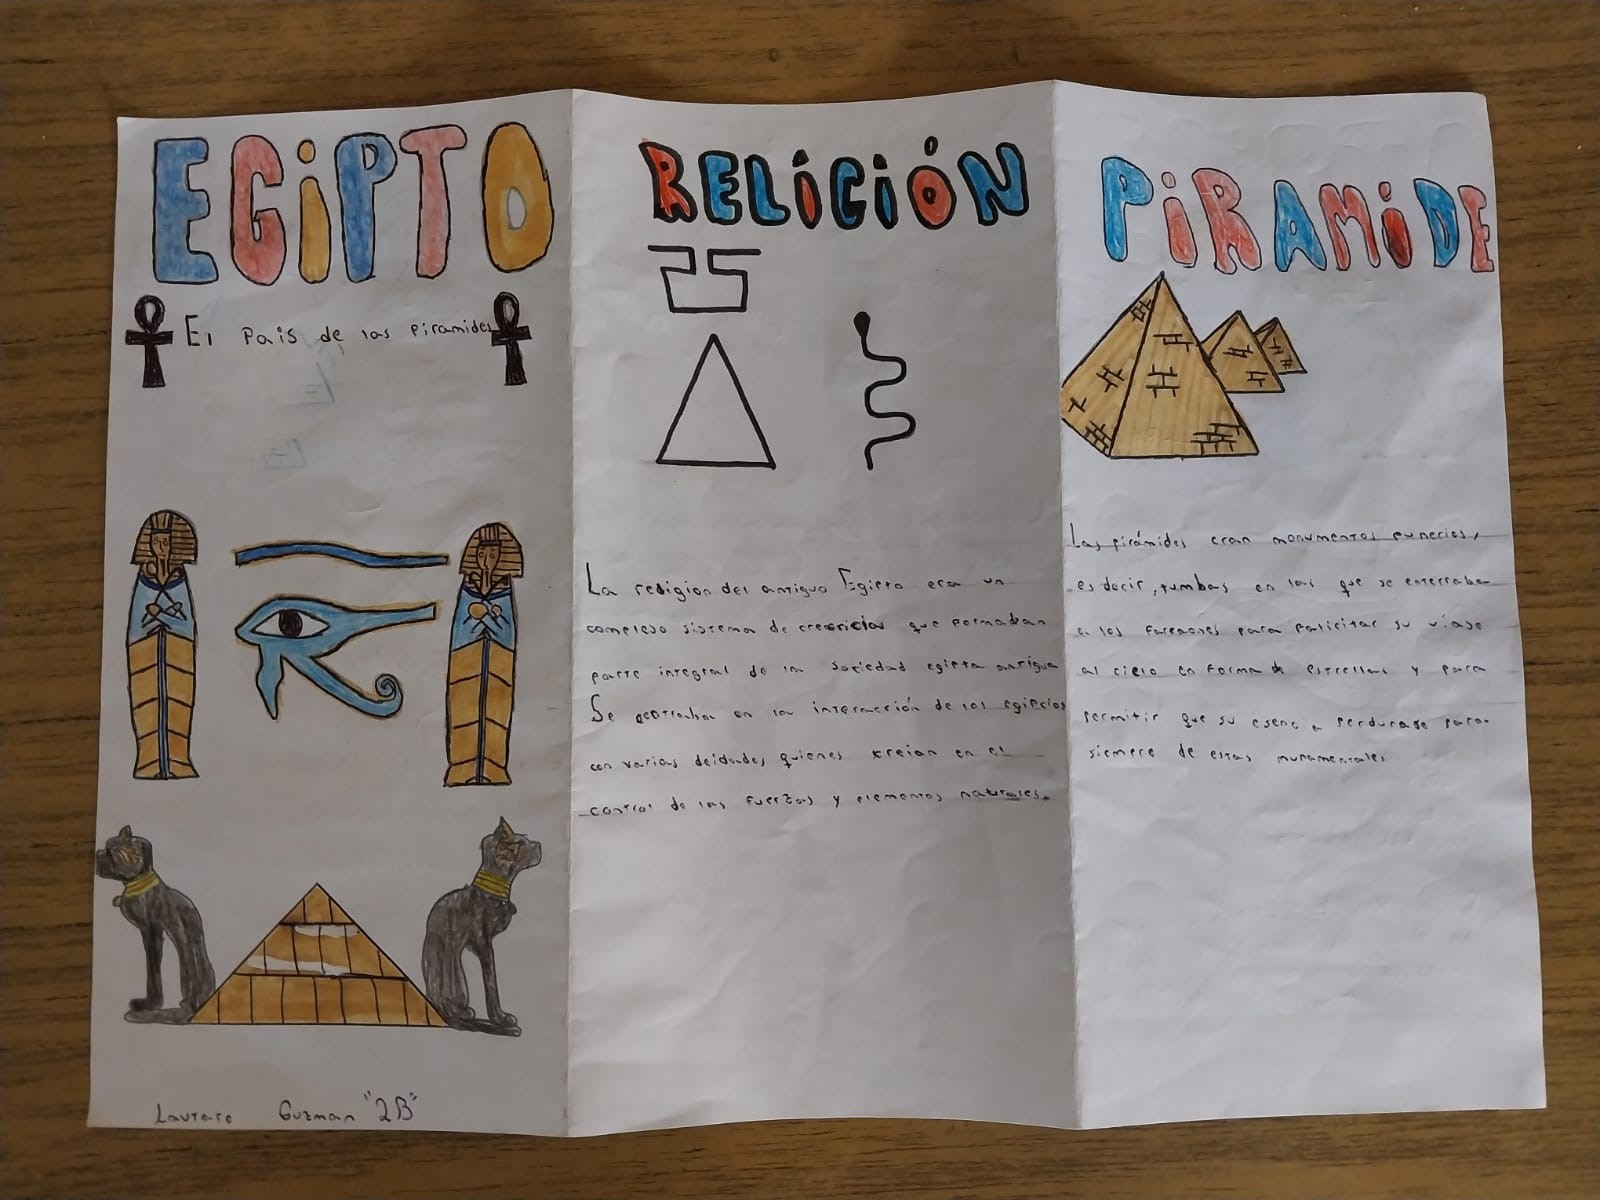 EGiPTO
El Pais de las piramides
Lautaro Guzman "2B"
RELiGiÓN
La religion del antiguo Egipto era un
complejo sistema de creencias que formaban
parte integral de la sociedad egipta antigua
Se centraba en la interacción de los egipcios
con varias deidades quienes kreian en el
control de las fuerzas y elementos naturales.
PiRAMiDE
Las pirámides eran monumentos funerios,
es decir, tumbas en las que se enterraba
a los faraones para su viaje
al cielo en forma de estrellas y para
permitir que su esenc a perdurase para
siempre de estas munumentales